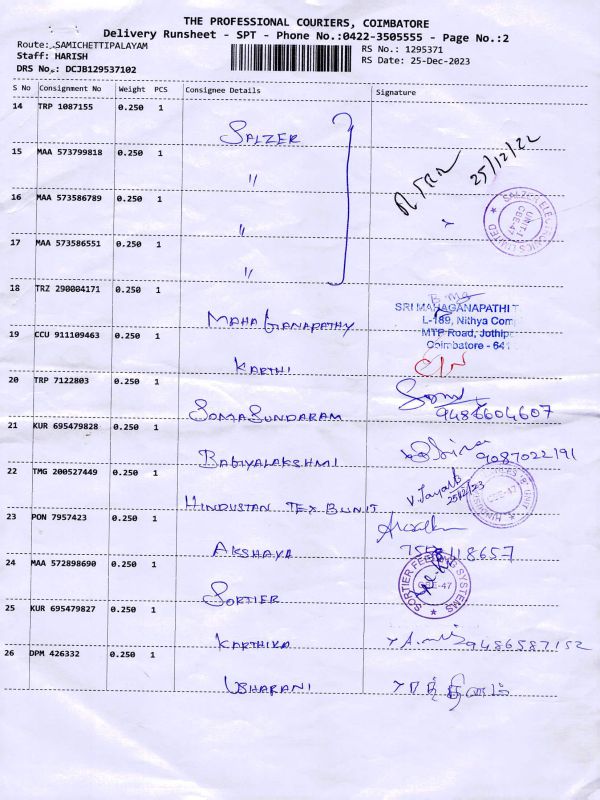 THE PROFESSIONAL COURIERS, COIMBATORE
Delivery Runsheet - SPT - Phone No.:0422-3505555 - Page No.:2
Route: SAMICHETTIPALAYAM
RS No.: 1295371
Staff: HARISH
RS Date: 25-Dec-2023
DRS No.: DCJB129537102
S No Consignment No Weight PCS Consignee Details Signature
14 TRP 1087155 0.250 1
SALZER
15 MAA 573799818 0.250 1
"
25/12/22
16 MAA 573586789 0.250 1
"
SALZER ELECTRONICS LIMITED
UNIT-I
CBE-47
17 MAA 573586551 0.250 1
"
18 TRZ 290004171 0.250 1
MAHA GANAPATHY
SRI MAHAGANAPATHI T
L-169, Nithya Com
MTP Road, Jothip
Coimbatore - 641
19 CCU 911109463 0.250 1
KARTHI
20 TRP 7122803 0.250 1
SOMASUNDARAM
9486604607
21 KUR 695479828 0.250 1
BAGIYALAKSHMI
9087022191
22 TMG 200527449 0.250 1
HINDUSTAN TEX B UNIT
25/12/23
CBE-47
23 PON 7957423 0.250 1
AKSHAYA
24 MAA 572898690 0.250 1
SORTIER
SORTIER FEEDING SYSTEMS
CBE-47
25 KUR 695479827 0.250 1
KARTHIKA
9486587152
26 DPM 426332 0.250 1
USHARANI